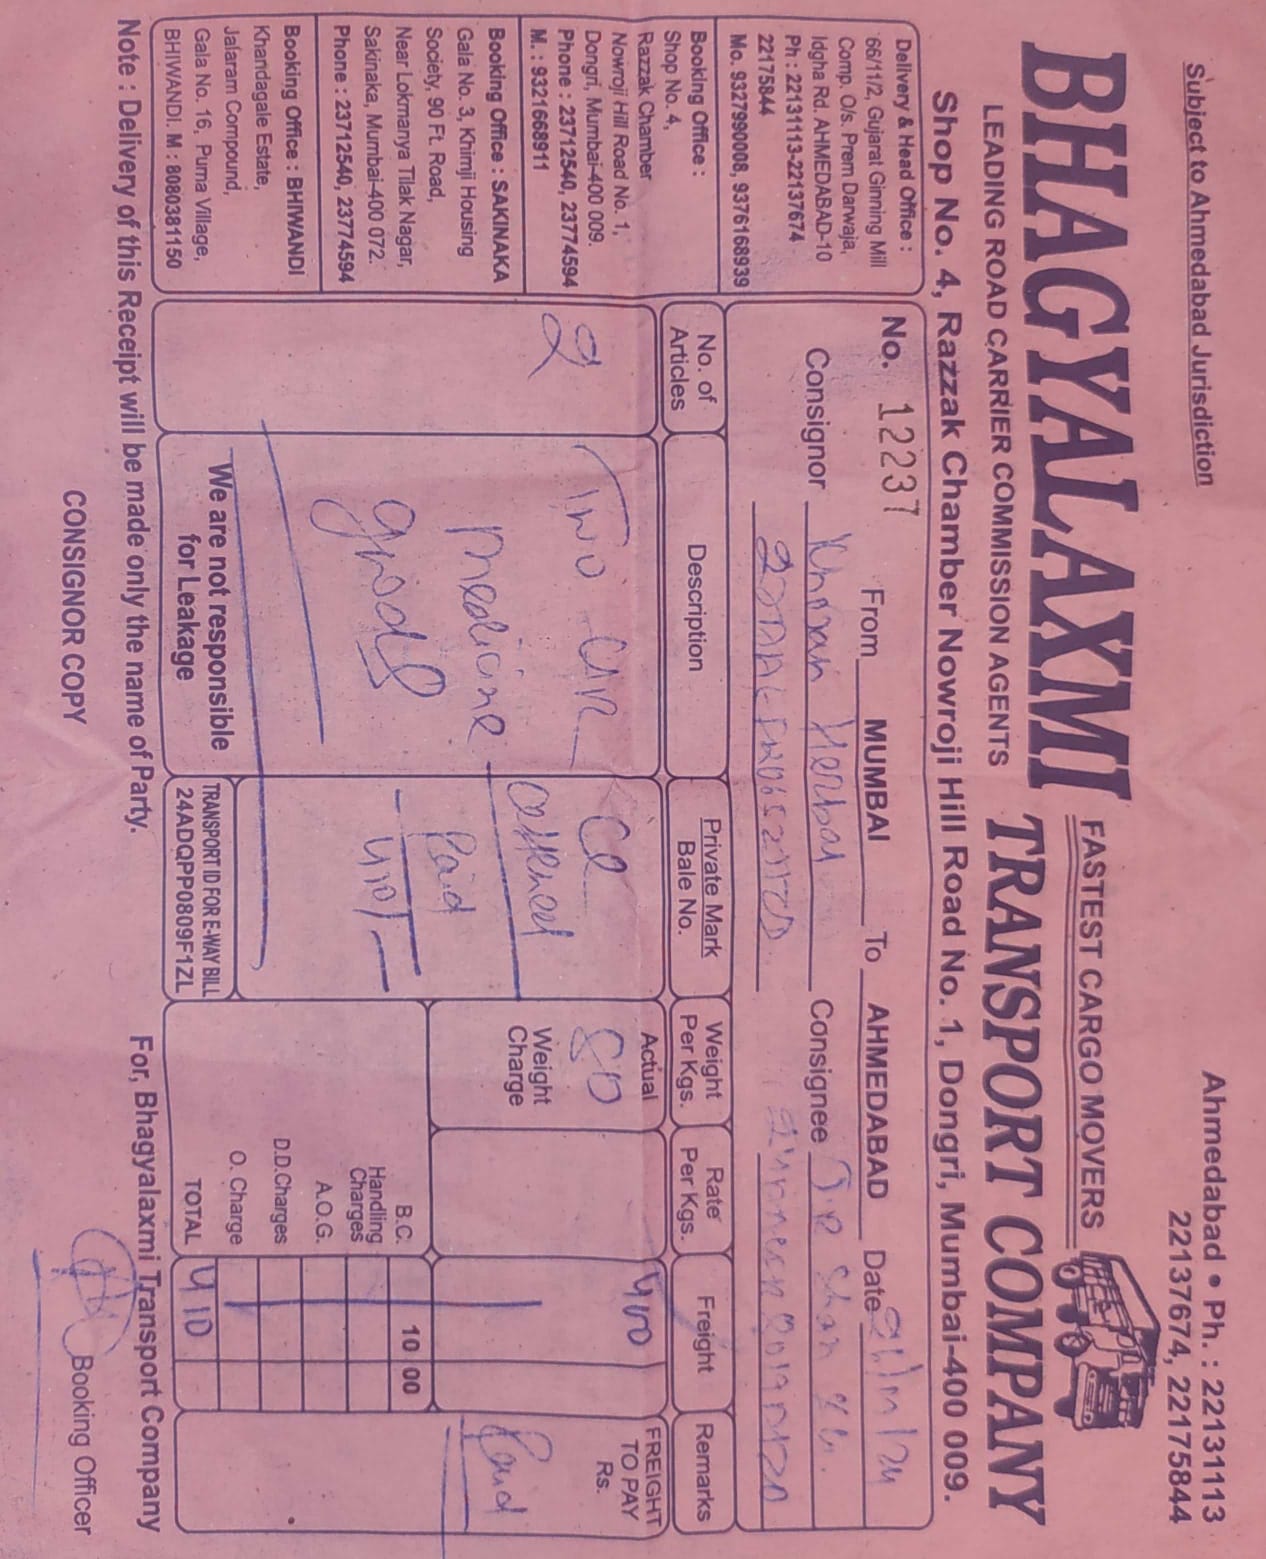 Subject to Ahmedabad Jurisdiction
Ahmedabad • Ph. : 22131113
22137674, 22175844
BHAGYALAXMI
FASTEST CARGO MOVERS
TRANSPORT COMPANY
LEADING ROAD CARRIER COMMISSION AGENTS
Shop No. 4, Razzak Chamber Nowroji Hill Road No. 1, Dongri, Mumbai-400 009.
Delivery & Head Office :
66/11/2, Gujarat Ginning Mill
Comp. O/s. Prem Darwaja,
Idgha Rd. AHMEDABAD-10
Ph : 22131113-22137674
22175844
Mo. 9327990008, 9376168939
Booking Office :
Shop No. 4,
Razzak Chamber
Nowroji Hill Road No. 1,
Dongri, Mumbai-400 009.
Phone : 23712540, 23774594
M. : 9321668911
Booking Office : SAKINAKA
Gala No. 3, Khimji Housing
Society, 90 Ft. Road,
Near Lokmanya Tilak Nagar,
Sakinaka, Mumbai-400 072.
Phone : 23712540, 23774594
Booking Office : BHIWANDI
Khandagale Estate,
Jalaram Compound,
Gala No. 16, Purna Village,
BHIWANDI. M : 8080381150
No. 12237 From MUMBAI To AHMEDABAD Date
Consignor Herbal Consignee
No. of Articles
Description
Private Mark
Bale No.
Weight Per Kgs.
Rate Per Kgs.
Freight
Remarks
2
Two
Medicine
goods
Paid
410/-
Actual
80
Weight Charge
400
FREIGHT TO PAY Rs.
Paid
B.C. 10 00
Handling Charges
A.O.G.
D.D.Charges
O. Charge
TOTAL 410
We are not responsible for Leakage
TRANSPORT ID FOR E-WAY BILL
24ADQPP0809F1ZL
Note : Delivery of this Receipt will be made only the name of Party.
For, Bhagyalaxmi Transport Company
CONSIGNOR COPY
Booking Officer